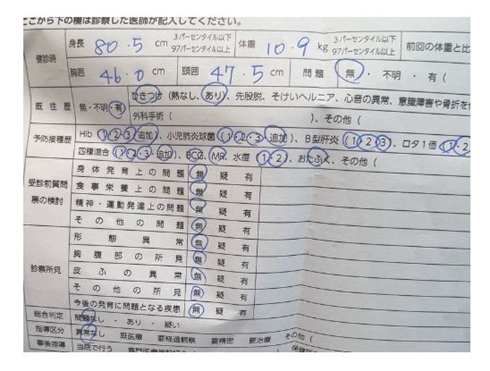 ここから下の欄は診察した医師が記入してください。
健診時 身長 80.5 cm 3パーセンタイル以下 97パーセンタイル以上 体重 10.9 kg 3パーセンタイル以下 97パーセンタイル以上 前回の体重と比
胸囲 46.0 cm 頭囲 47.5 cm 問題 無・不明・有(
既往歴 無・不明・有( ひきつけ(熱なし、あり)、先股脱、そけいヘルニア、心音の異常、意識障害や骨折を
外科手術( )、その他(
予防接種歴 Hib(1・2・3・追加)、小児肺炎球菌(1・2・3・追加)、B型肝炎(1・2・3)、ロタ1価(1・2
四種混合(1・2・3・追加)、BCG、MR、水痘(1・2)、おたふく、その他(
受診前質問票の検討 身体発育上の問題 無 疑 有
食事栄養上の問題 無 疑 有
精神・運動発達上の問題 無 疑 有
その他の問題 無 疑 有
診察所見 形態異常 無 疑 有
胸腹部の所見 無 疑 有
皮ふの異常 無 疑 有
その他の所見 無 疑 有
今後の発育に問題となる疾患 無 疑 有
総合判定 問題なし・あり・疑い
指導区分 異常なし 既医療 要経過観察 要精密 要治療 その他(
事後指導 当院で行う